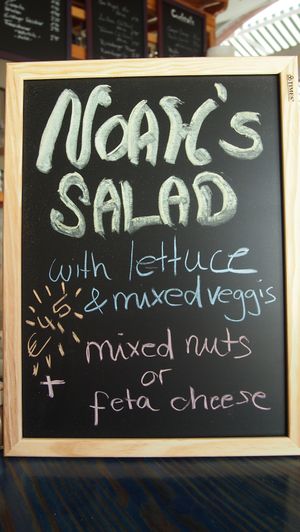 NOAH'S
SALAD
with lettuce
& mixed veggis
€ 4,5
+ mixed nuts
or
feta cheese